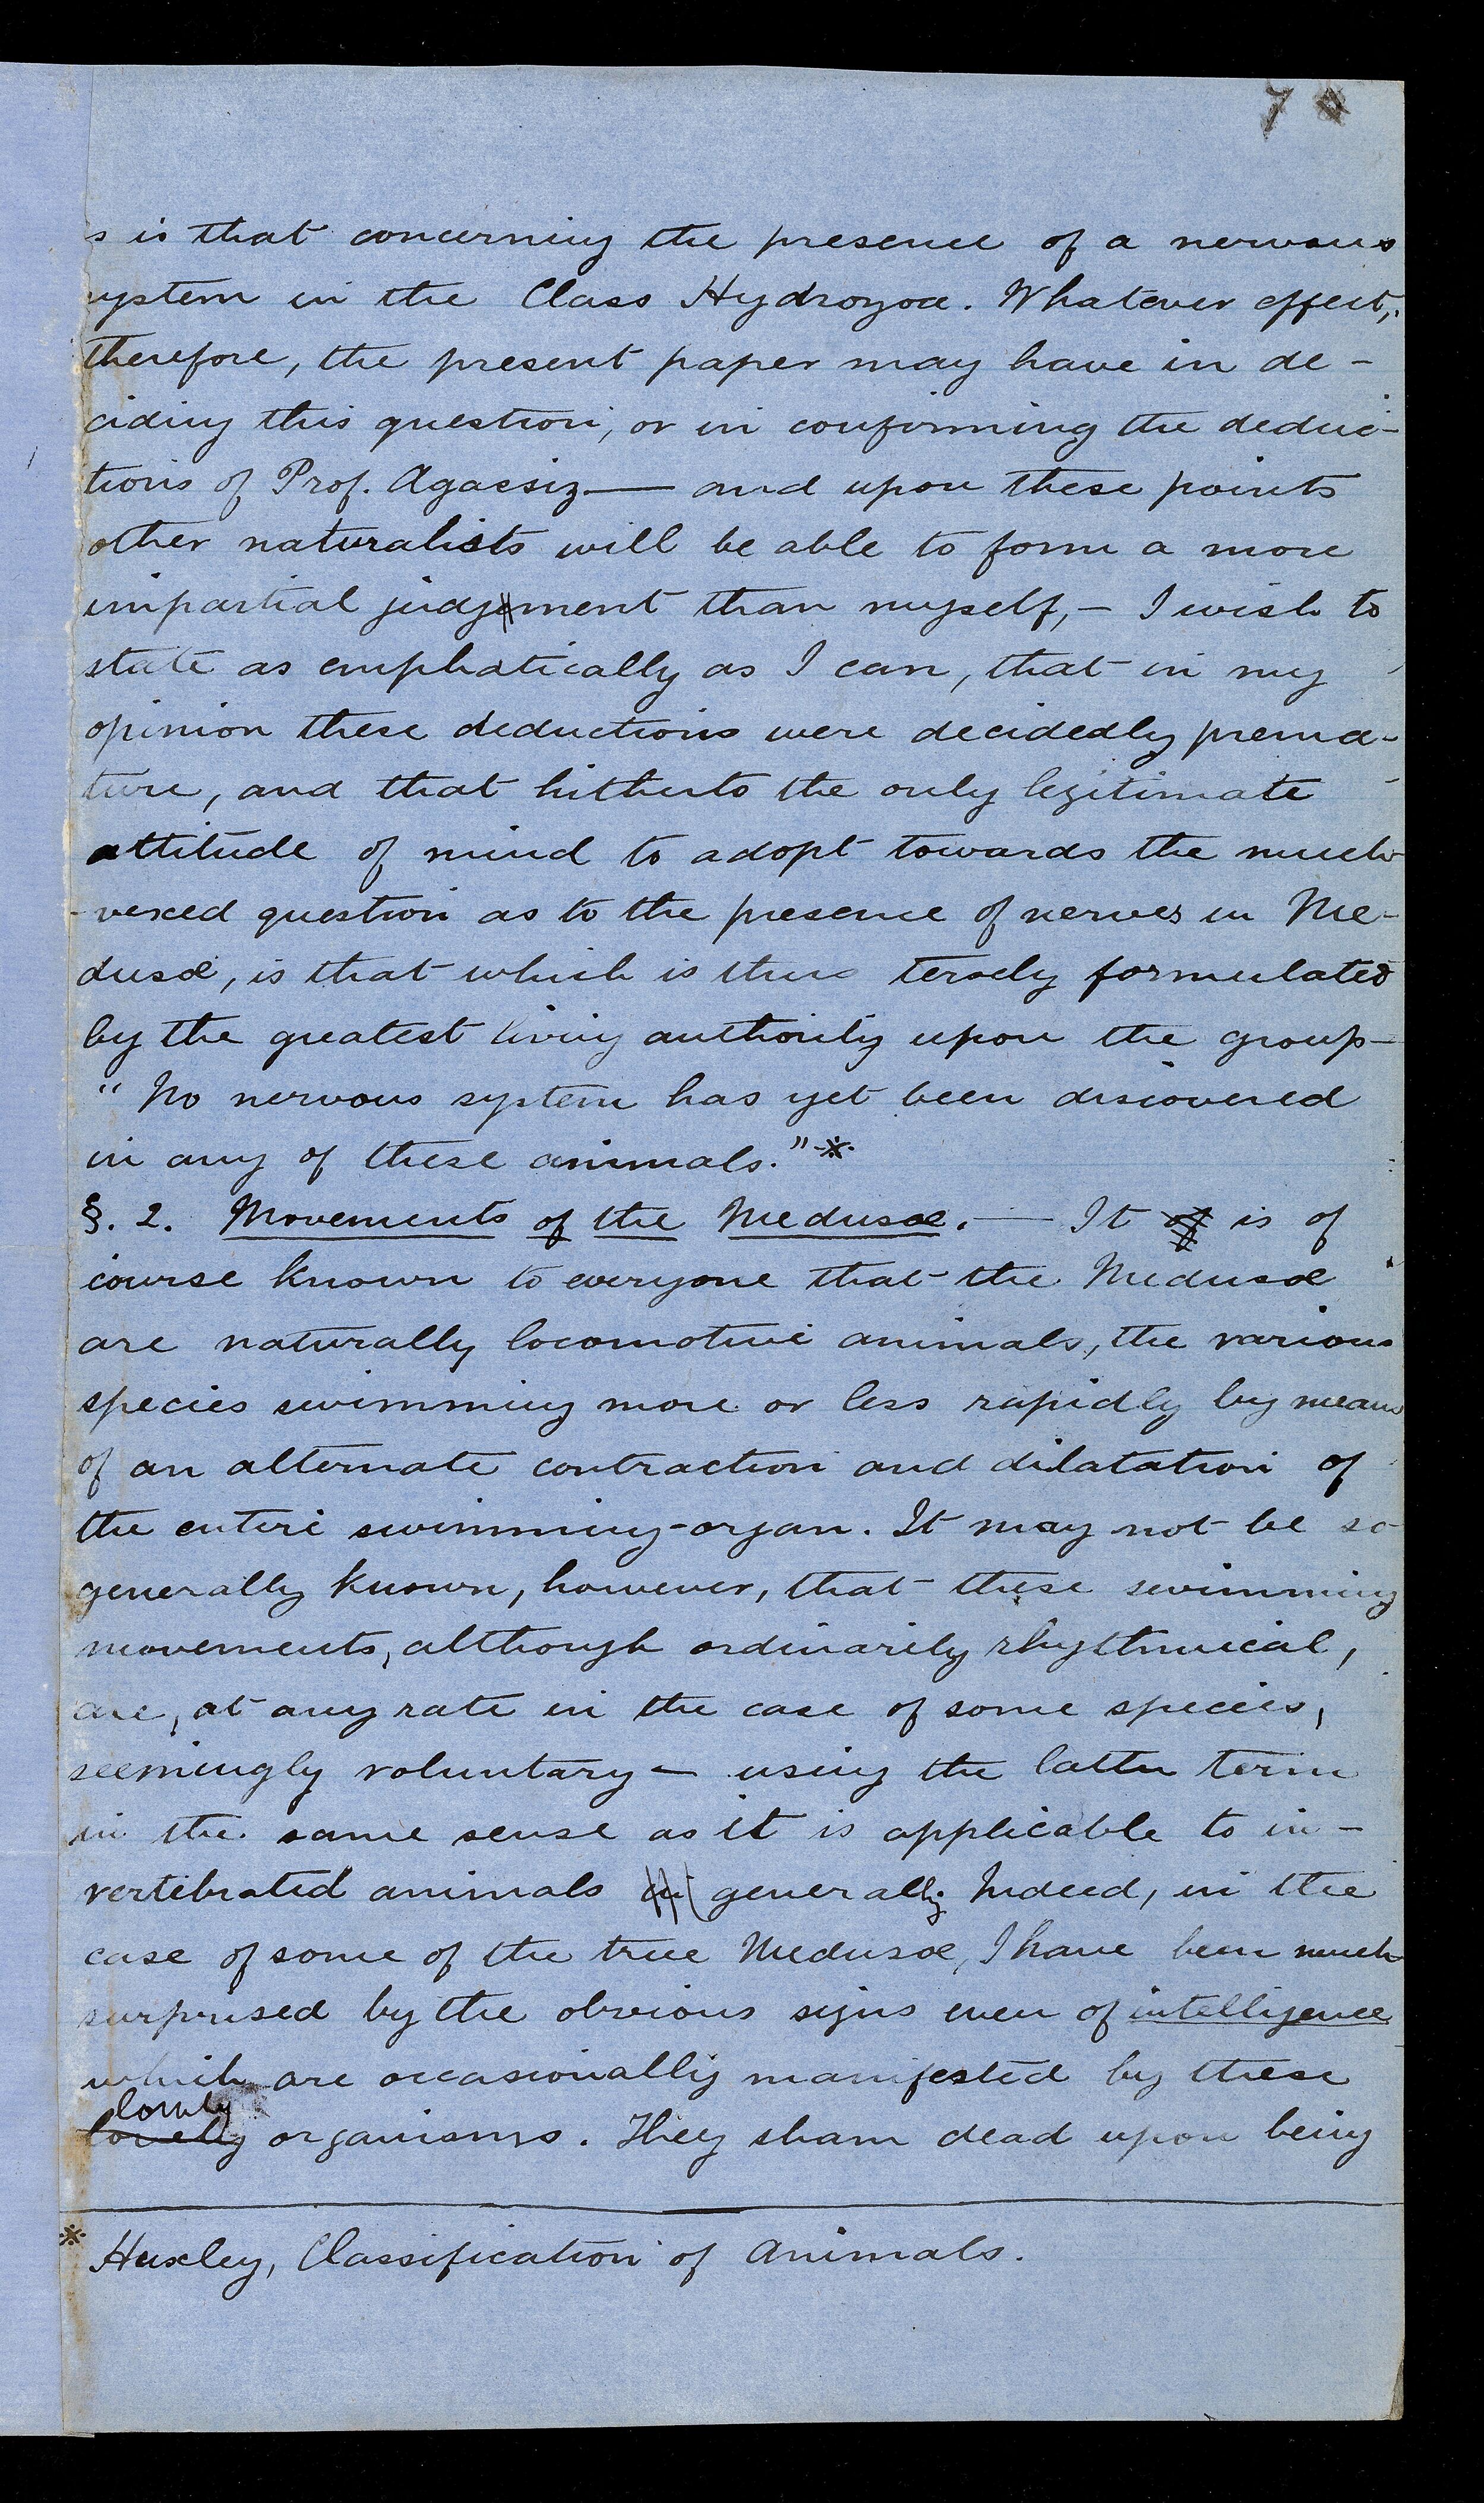 7
s is that concerning the presence of a nervous
ystem in the Class Hydrozoa. Whatever effect,
therefore, the present paper may have in de-
ciding this question, or in confirming the deduc-
tions of Prof. Agassiz — and upon these points
other naturalists will be able to form a more
impartial judgment than myself, — I wish to
state as emphatically as I can, that in my
opinion these deductions were decidedly prema-
ture, and that hitherto the only legitimate
attitude of mind to adopt towards the much-
-vexed question as to the presence of nerves in Me-
dusæ, is that which is thus tersely formulated
by the greatest living authority upon the group—
"No nervous system has yet been discovered
in any of these animals."*
§. 2. Movements of the Medusæ. — It is of
course known to everyone that the Medusæ
are naturally locomotive animals, the various
species swimming more or less rapidly by means
of an alternate contraction and dilatation of
the entire swimming-organ. It may not be so
generally known, however, that these swimming
movements, although ordinarily rhythmical,
are, at any rate in the case of some species,
seemingly voluntary — using the latter term
in the same sense as it is applicable to in-
vertebrated animals generally. Indeed, in the
case of some of the true Medusæ, I have been much
surprised by the obvious signs even of intelligence
which are occasionally manifested by these
lowly
lovely organisms. They sham dead upon being
* Huxley, Classification of Animals.